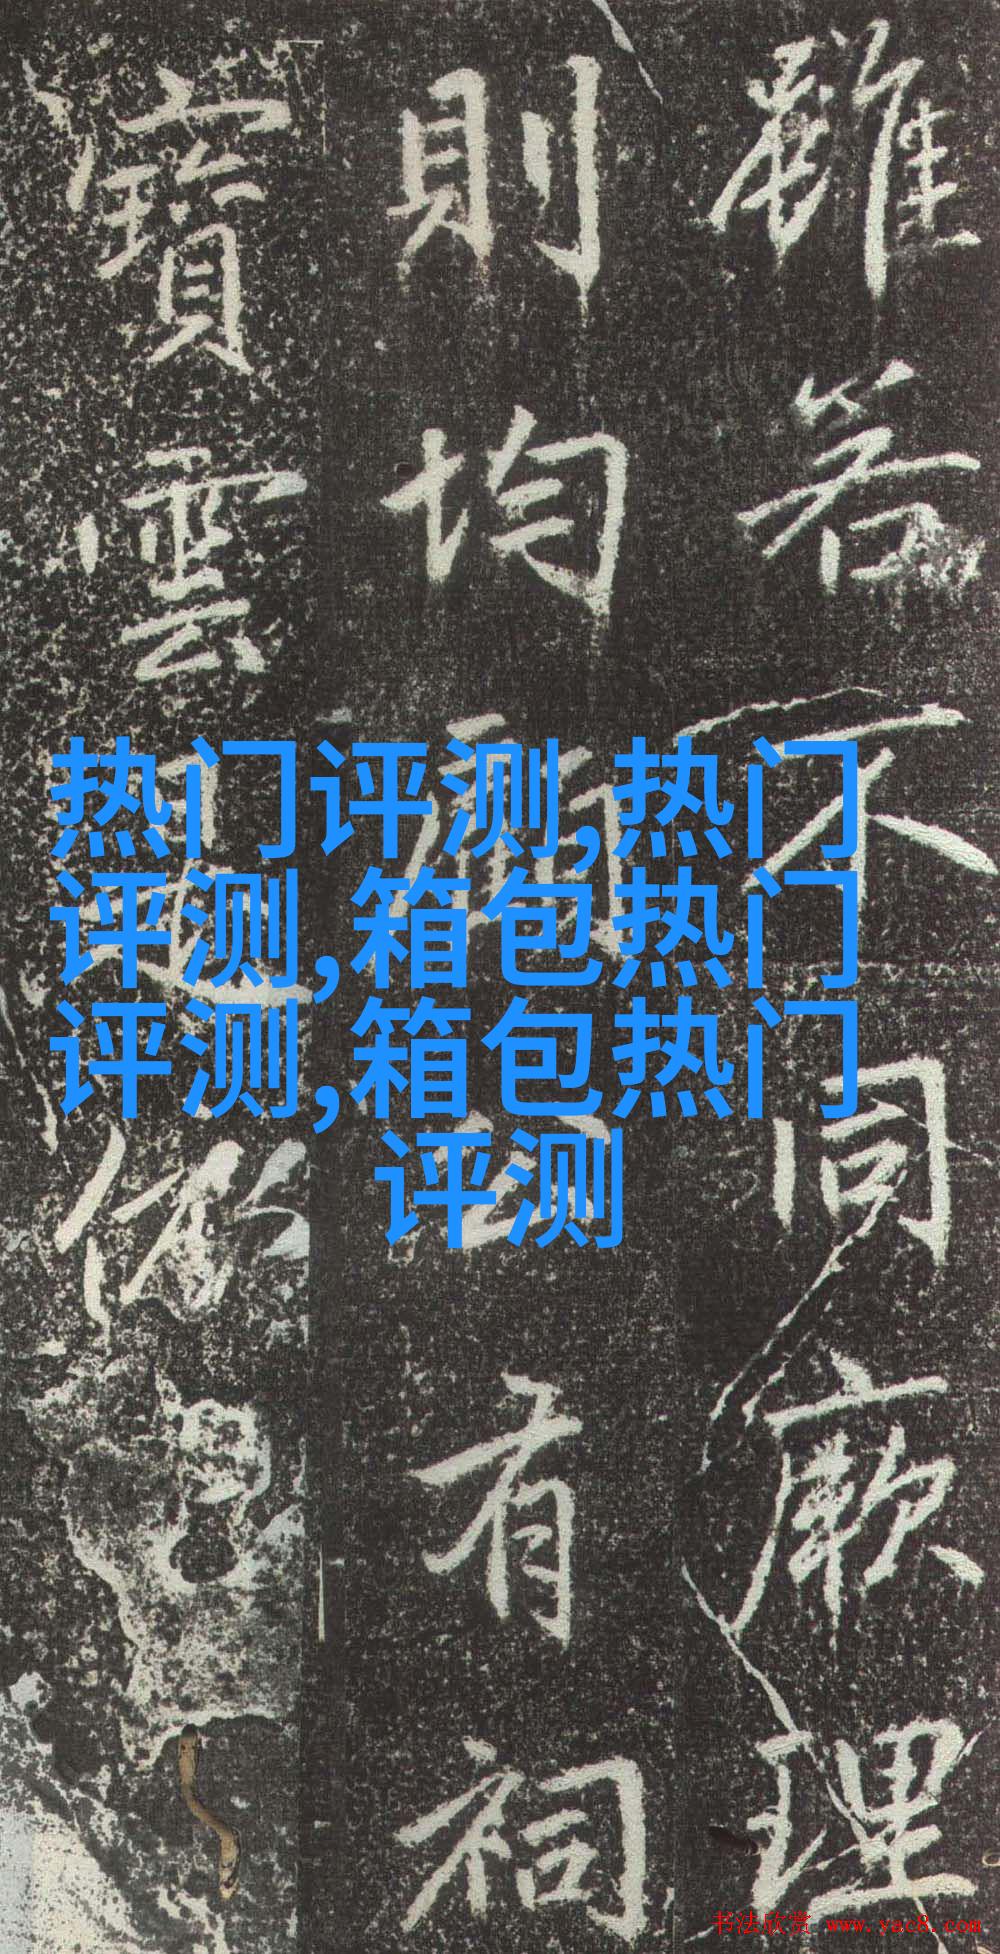 雖若不同厥理
則均顧公有祠
寶雲
熱门评测,热门
评测,箱包热门
评测,箱包热门
评测
书法欣赏 www.yac8.com